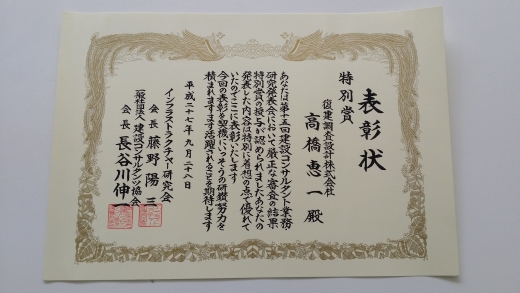 表彰状
特別賞
復建調査設計株式会社
高橋恵一殿
あなたは第十五回建設コンサルタント業務
研究発表会において厳正な審査の結果
特別賞の授与が認められましたあなたの
発表した内容は特別に着想の点で優れて
いたのでここに表彰いたします
今回の表彰を契機にいっそうの研鑽努力を
積まれますます活躍されることを期待します
平成二十七年九月二十八日
インフラストラクチャー研究会
会長 藤野陽三
一般社団法人 建設コンサルタンツ協会
会長 長谷川伸一